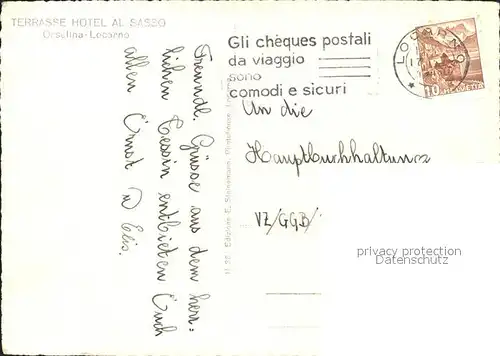 TERRASSE HOTEL AL SASSO
Orselina-Locarno
Freundl. Grüsse aus dem herr:
lichen Tessin entbieten Euch
allen Ernst u Elis.
Gli chèques postali
da viaggio
sono
comodi e sicuri
LOCARNO
10
HELVETIA
An die
Hauptbuchhaltung
VZ/GGB/
privacy protection
Datenschutz